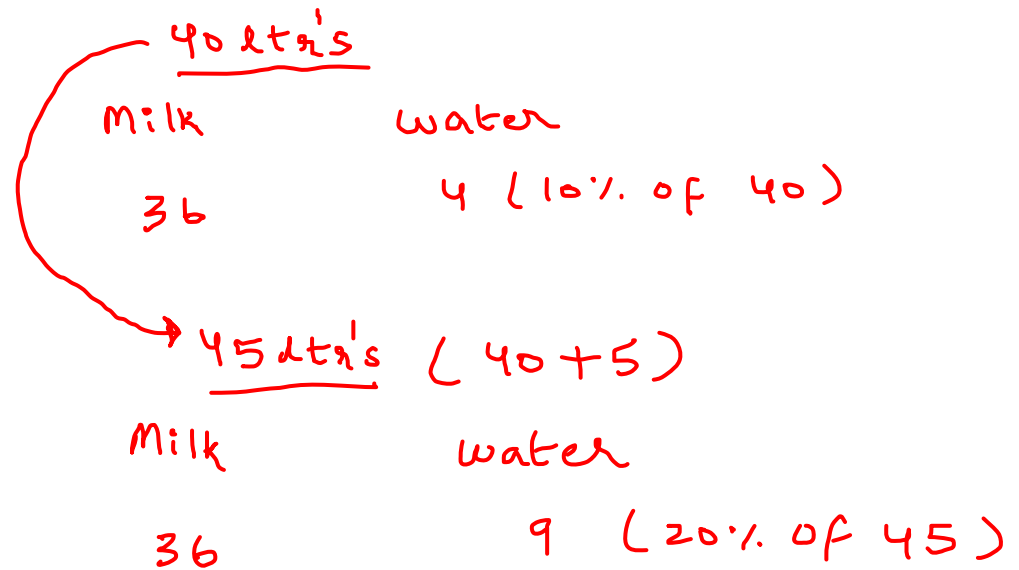 40 ltr's
Milk water
36 4 (10% of 40)
45 ltr's (40+5)
Milk water
36 9 (20% of 45)